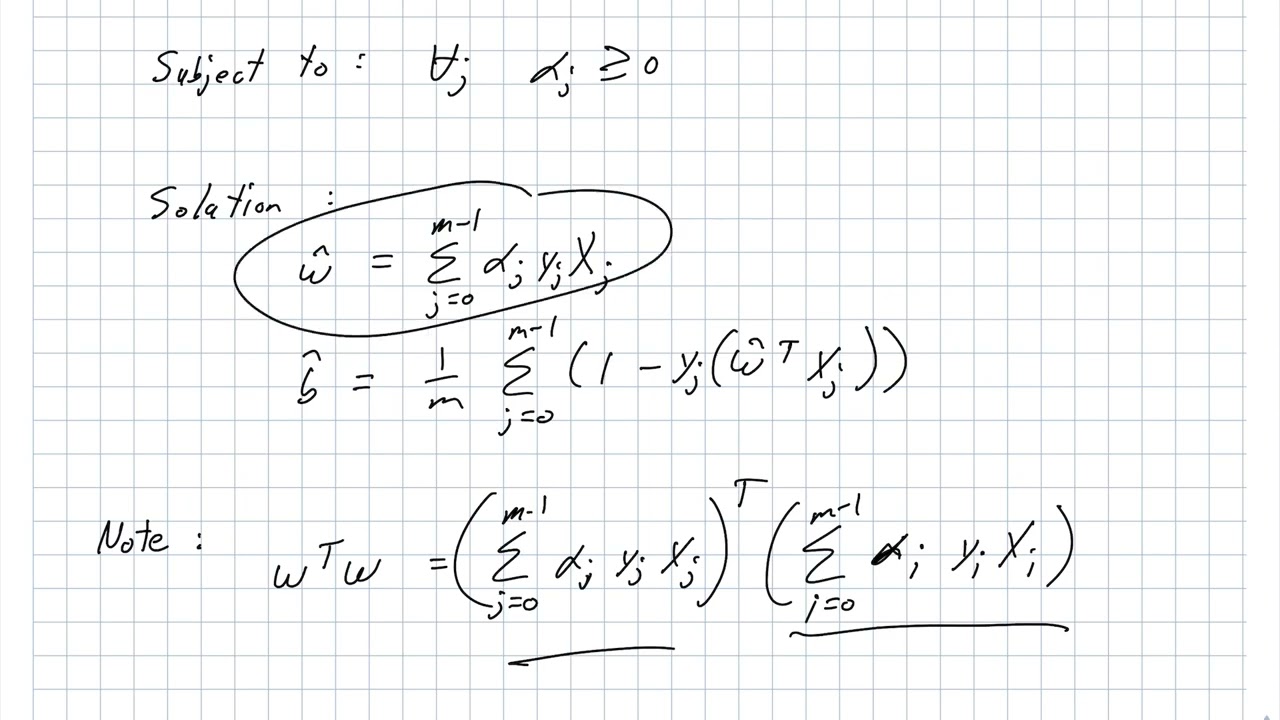 Subject to : ∀j αj ≥ 0
Solation :
ŵ = ∑_{j=0}^{m-1} αj yj Xj
b̂ = 1/m ∑_{j=0}^{m-1} (1 - yj(ŵ^T Xj))
Note : w^T w = (∑_{j=0}^{m-1} αj yj Xj)^T (∑_{j=0}^{m-1} αj yj Xj)